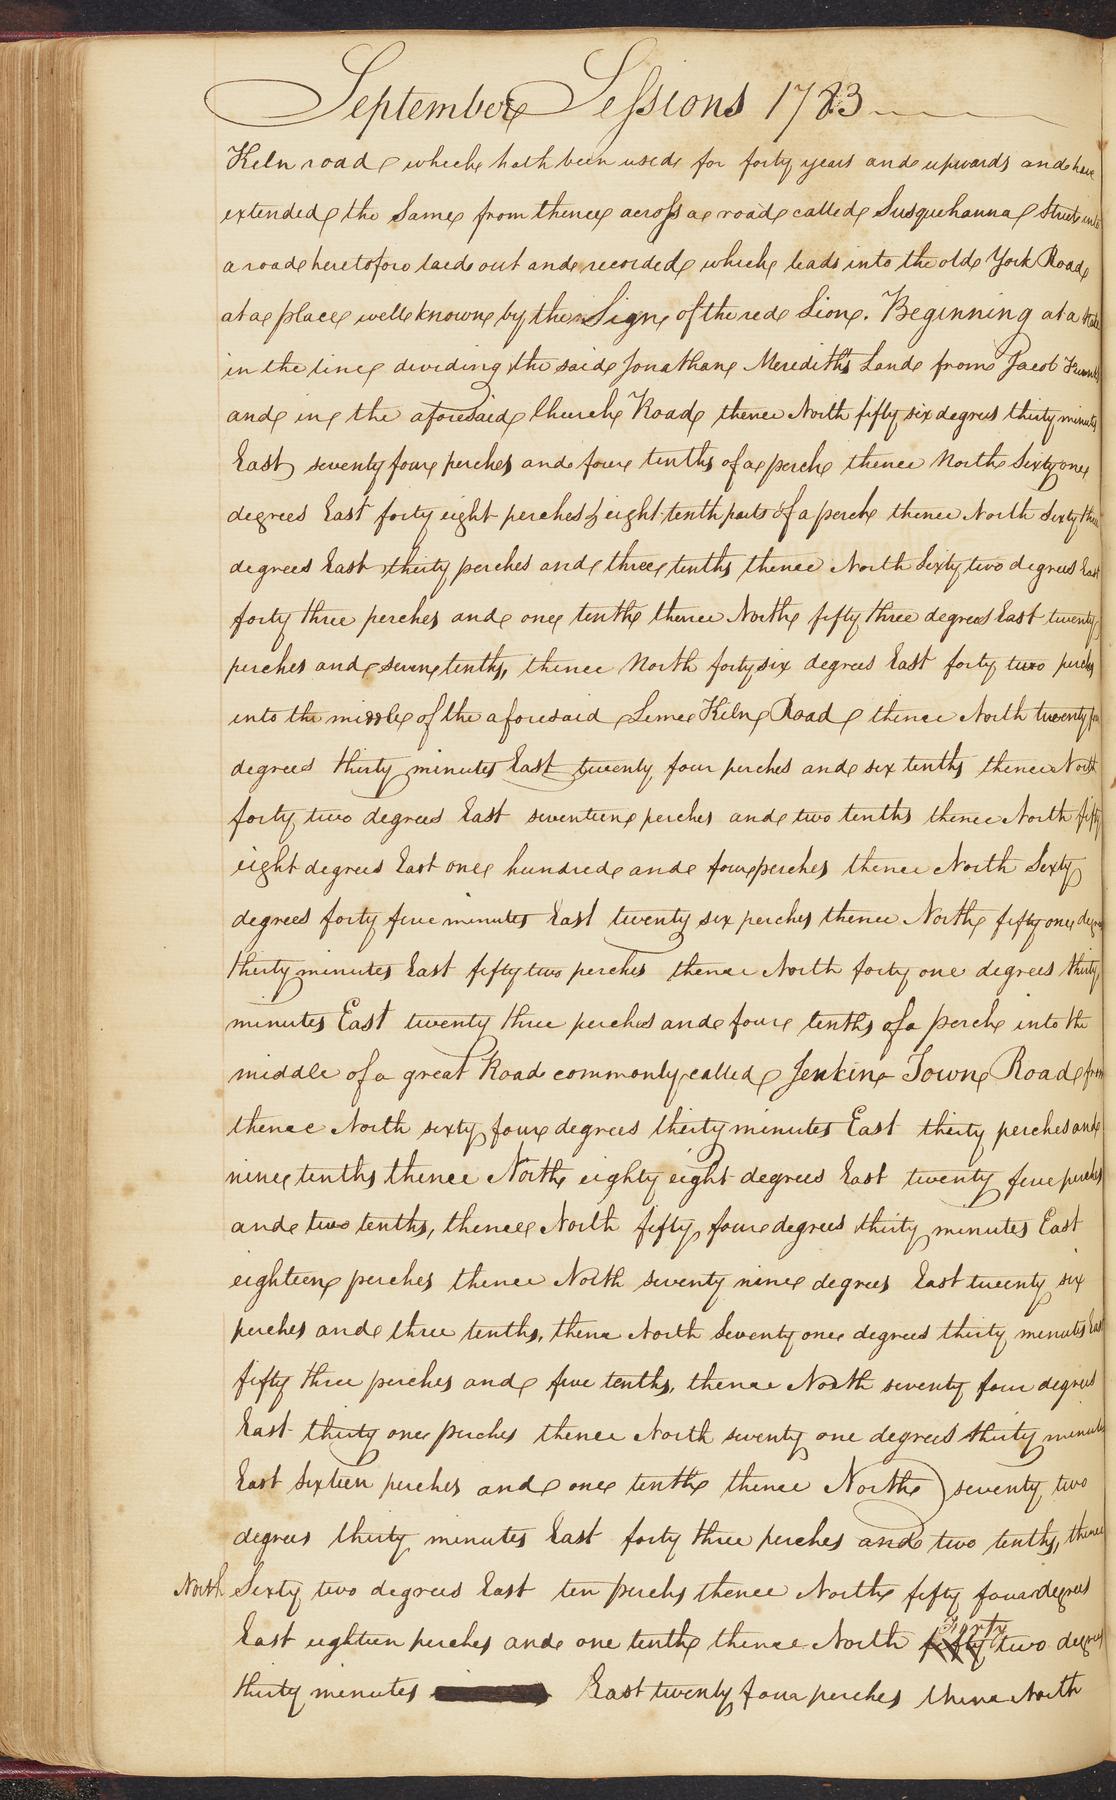 September Sessions 1783
Kiln road which hath been used for forty years and upwards and have
extended the Same from thence across a road called Susquehanna Street into
a road heretofore laid out and recorded which leads into the old York Road
at a place well known by the Sign of the red Lion. Beginning at a Stake
in the line dividing the said Jonathan Merediths Land from Jacob
and in the aforesaid Church Road thence North fifty six degrees thirty minutes
East seventy four perches and four tenths of a perch thence North Sixty one
degrees East forty eight perches & eight tenth parts of a perch thence North Sixty three
degrees East thirty perches and three tenths thence North Sixty two degrees East
forty three perches and one tenth thence North fifty three degrees East twenty
perches and seven tenths, thence North forty six degrees East forty two perches
into the middle of the aforesaid Lime Kiln Road thence North twenty four
degrees thirty minutes East twenty four perches and six tenths thence North
forty two degrees East seventeen perches and two tenths thence North fifty
eight degrees East one hundred and four perches thence North Sixty
degrees forty five minutes East twenty six perches thence North fifty one degrees
thirty minutes East fifty two perches thence North forty one degrees thirty
minutes East twenty three perches and four tenths of a perch into the
middle of a great Road commonly called Jenkins Town Road from
thence North sixty four degrees thirty minutes East thirty perches and
nine tenths thence North eighty eight degrees East twenty five perches
and two tenths, thence North fifty four degrees thirty minutes East
eighteen perches thence North seventy nine degrees East twenty six
perches and three tenths, thence North Seventy one degrees thirty minutes East
fifty three perches and five tenths, thence North seventy four degrees
East thirty one perches thence North seventy one degrees thirty minutes
East Sixteen perches and one tenth thence North seventy two
degrees thirty minutes East forty three perches and two tenths, thence
North Sixty two degrees East ten perchs thence North fifty four degrees
East eighteen perches and one tenth thence North fifty Forty two degrees
thirty minutes East twenty four perches thence North